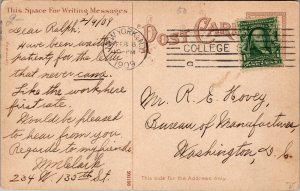 This Space For Writing Messages
2/9/09
Dear Ralph:
Have been waiting
patiently for the letter
that never came.
Like the workshere
first rate.
Would be pleased
to hear from you.
Regards to my friends
Wm Clark
234 W. 135th St.
POST CARD
NEW YORK, N.Y.
FEB 8
1909
COLLEGE
Mr. R. E. Hovey,
Bureau of Manufactures
Washington, D.C.
This side for the Address